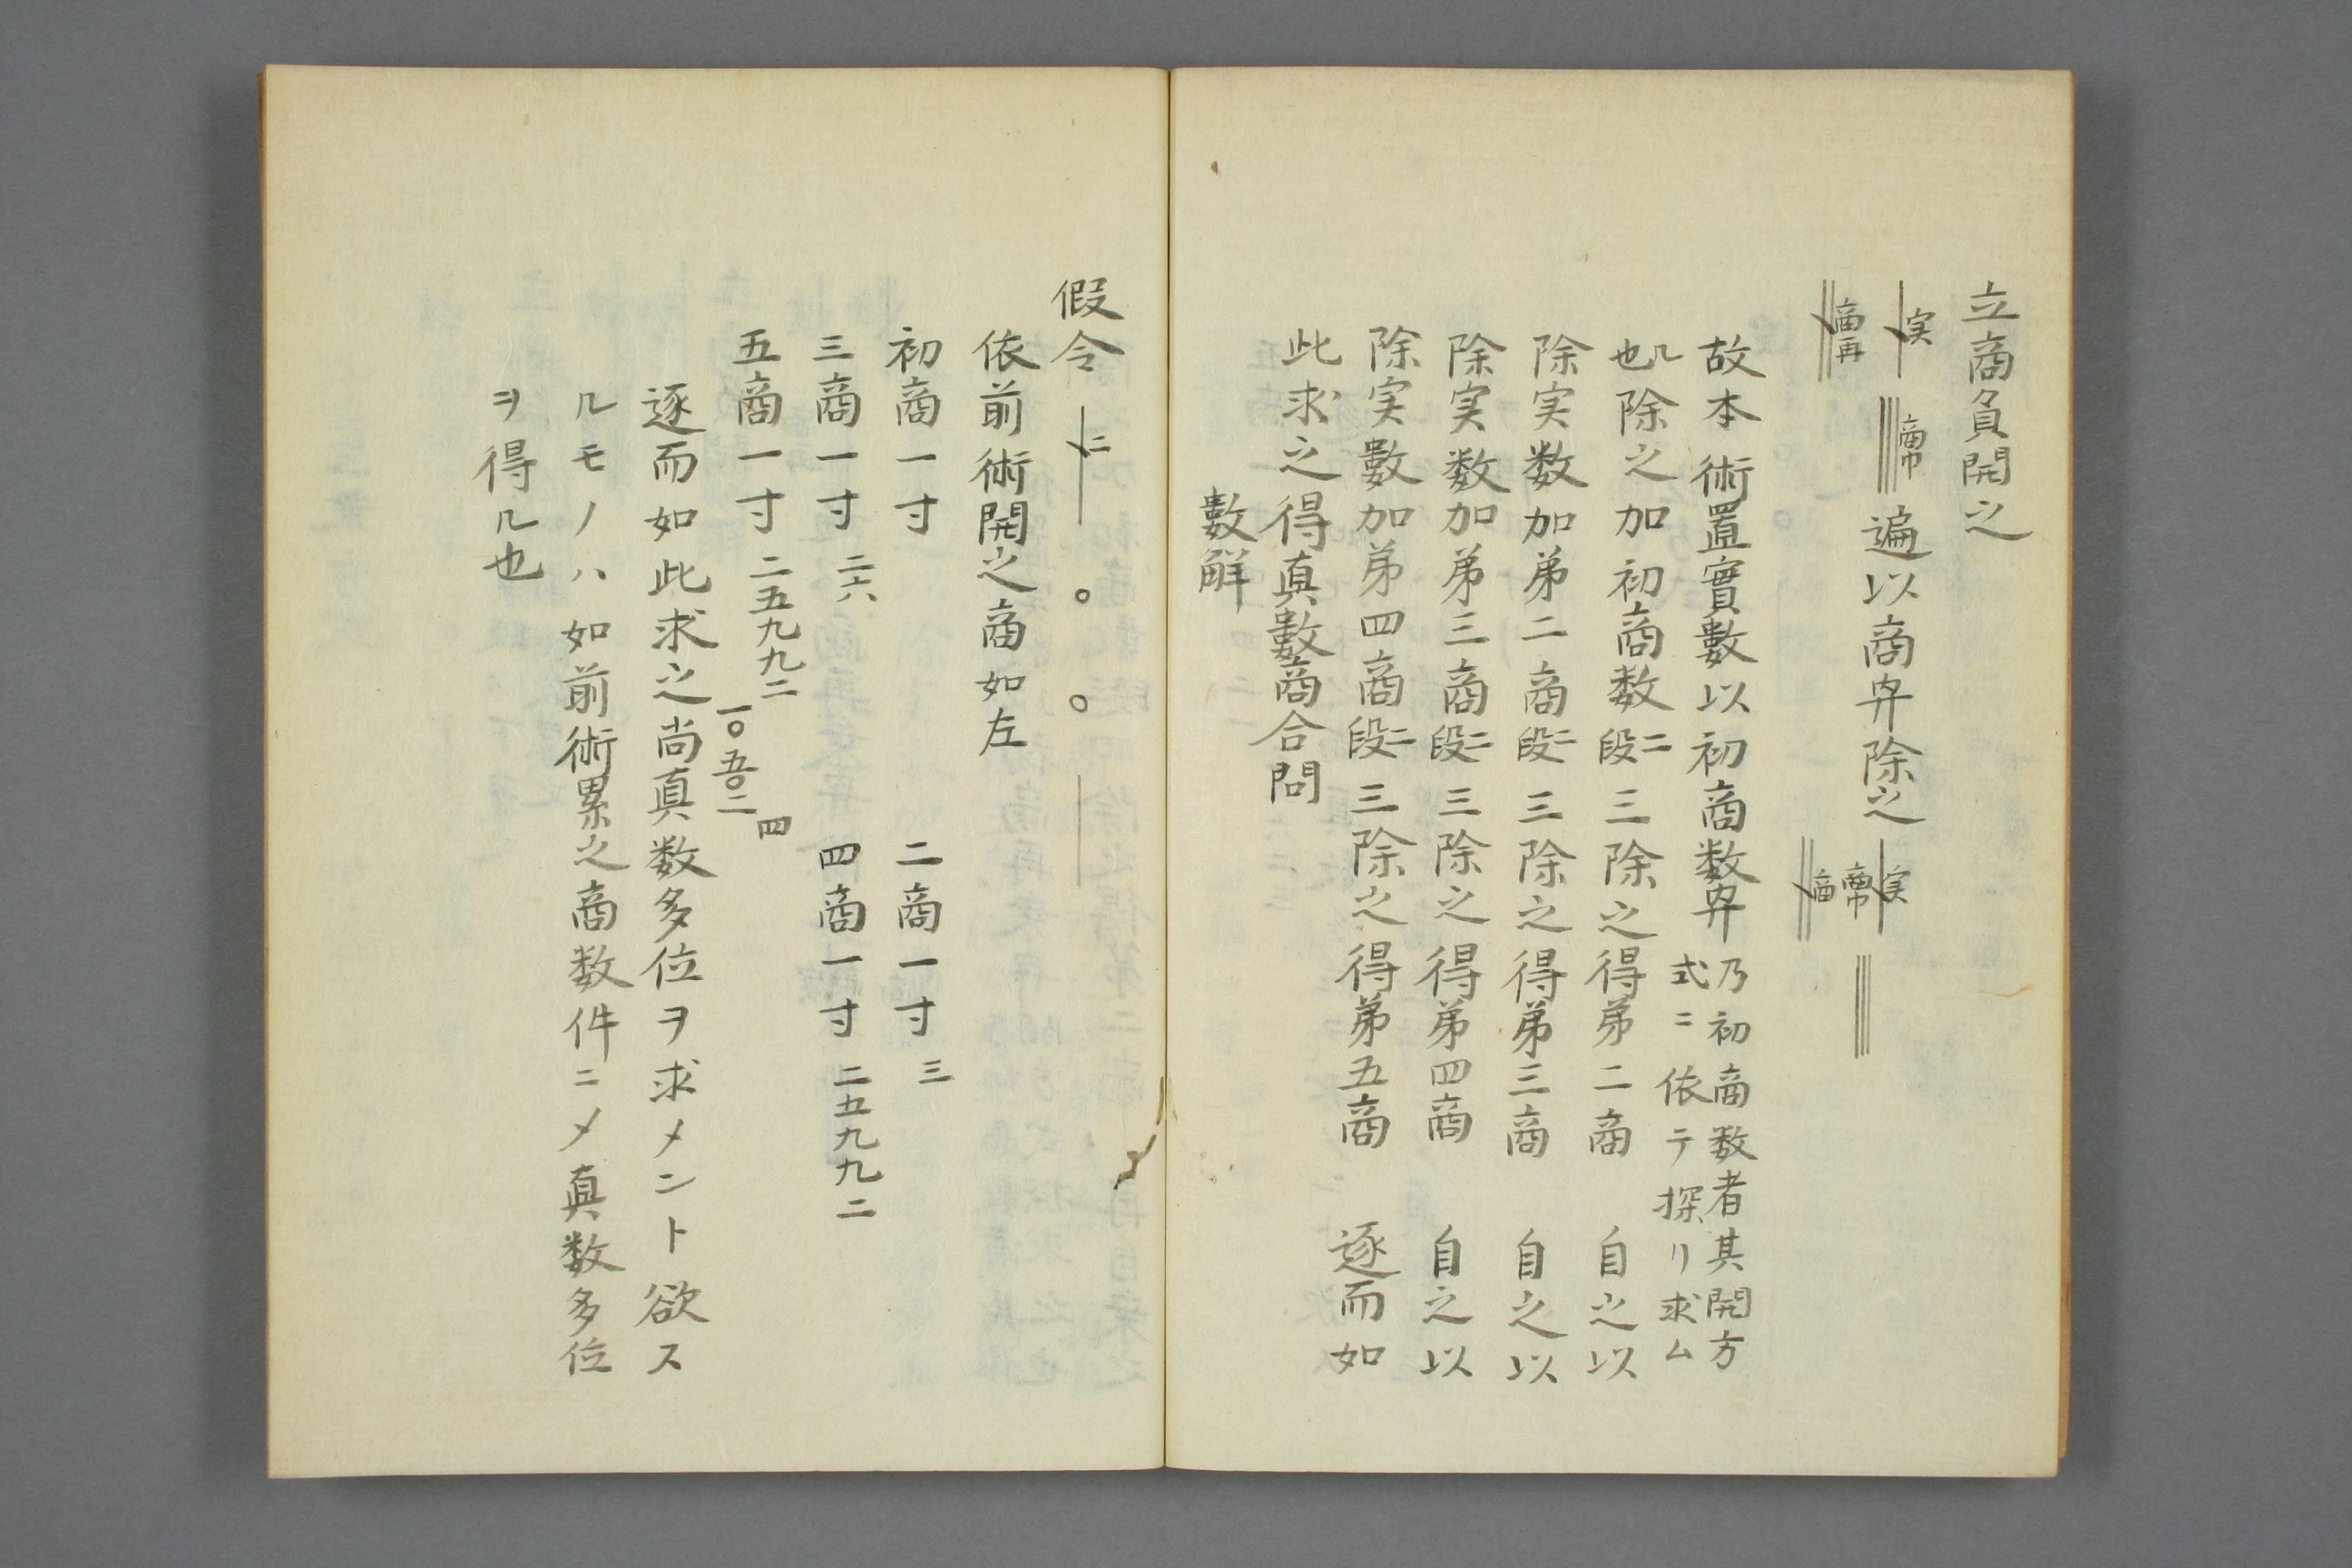 立商負開之
実 商巾 遍以商冉除之 実
商再 商巾 商
故本術置實數以初商数冉乃初商数者其開方
式ニ依テ探リ求ム
ル也除之加初商数二段三除之得第二商 自之以
除実数加第二商二段三除之得第三商 自之以
除実数加第三商二段三除之得第四商 自之以
除実數加第四商二段三除之得第五商 逐而如
此求之得真數商合問
數解
假令 二 〇 〇
依前術開之商如左
初商一寸 二商一寸三
三商一寸二六 四商一寸二五九九二
五商一寸二五九九二一〇五〇二四
逐而如此求之尚真数多位ヲ求メント欲ス
ルモノハ如前術累之商数件ニ〆真数多位
ヲ得ル也